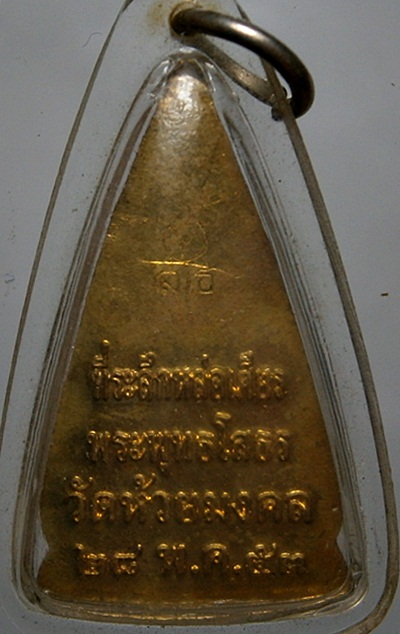 ที่ระลึกหล่อเศียร
พระพุทธโสธร
วัดห้วยมงคล
๒๘ พ.ค.๕๓